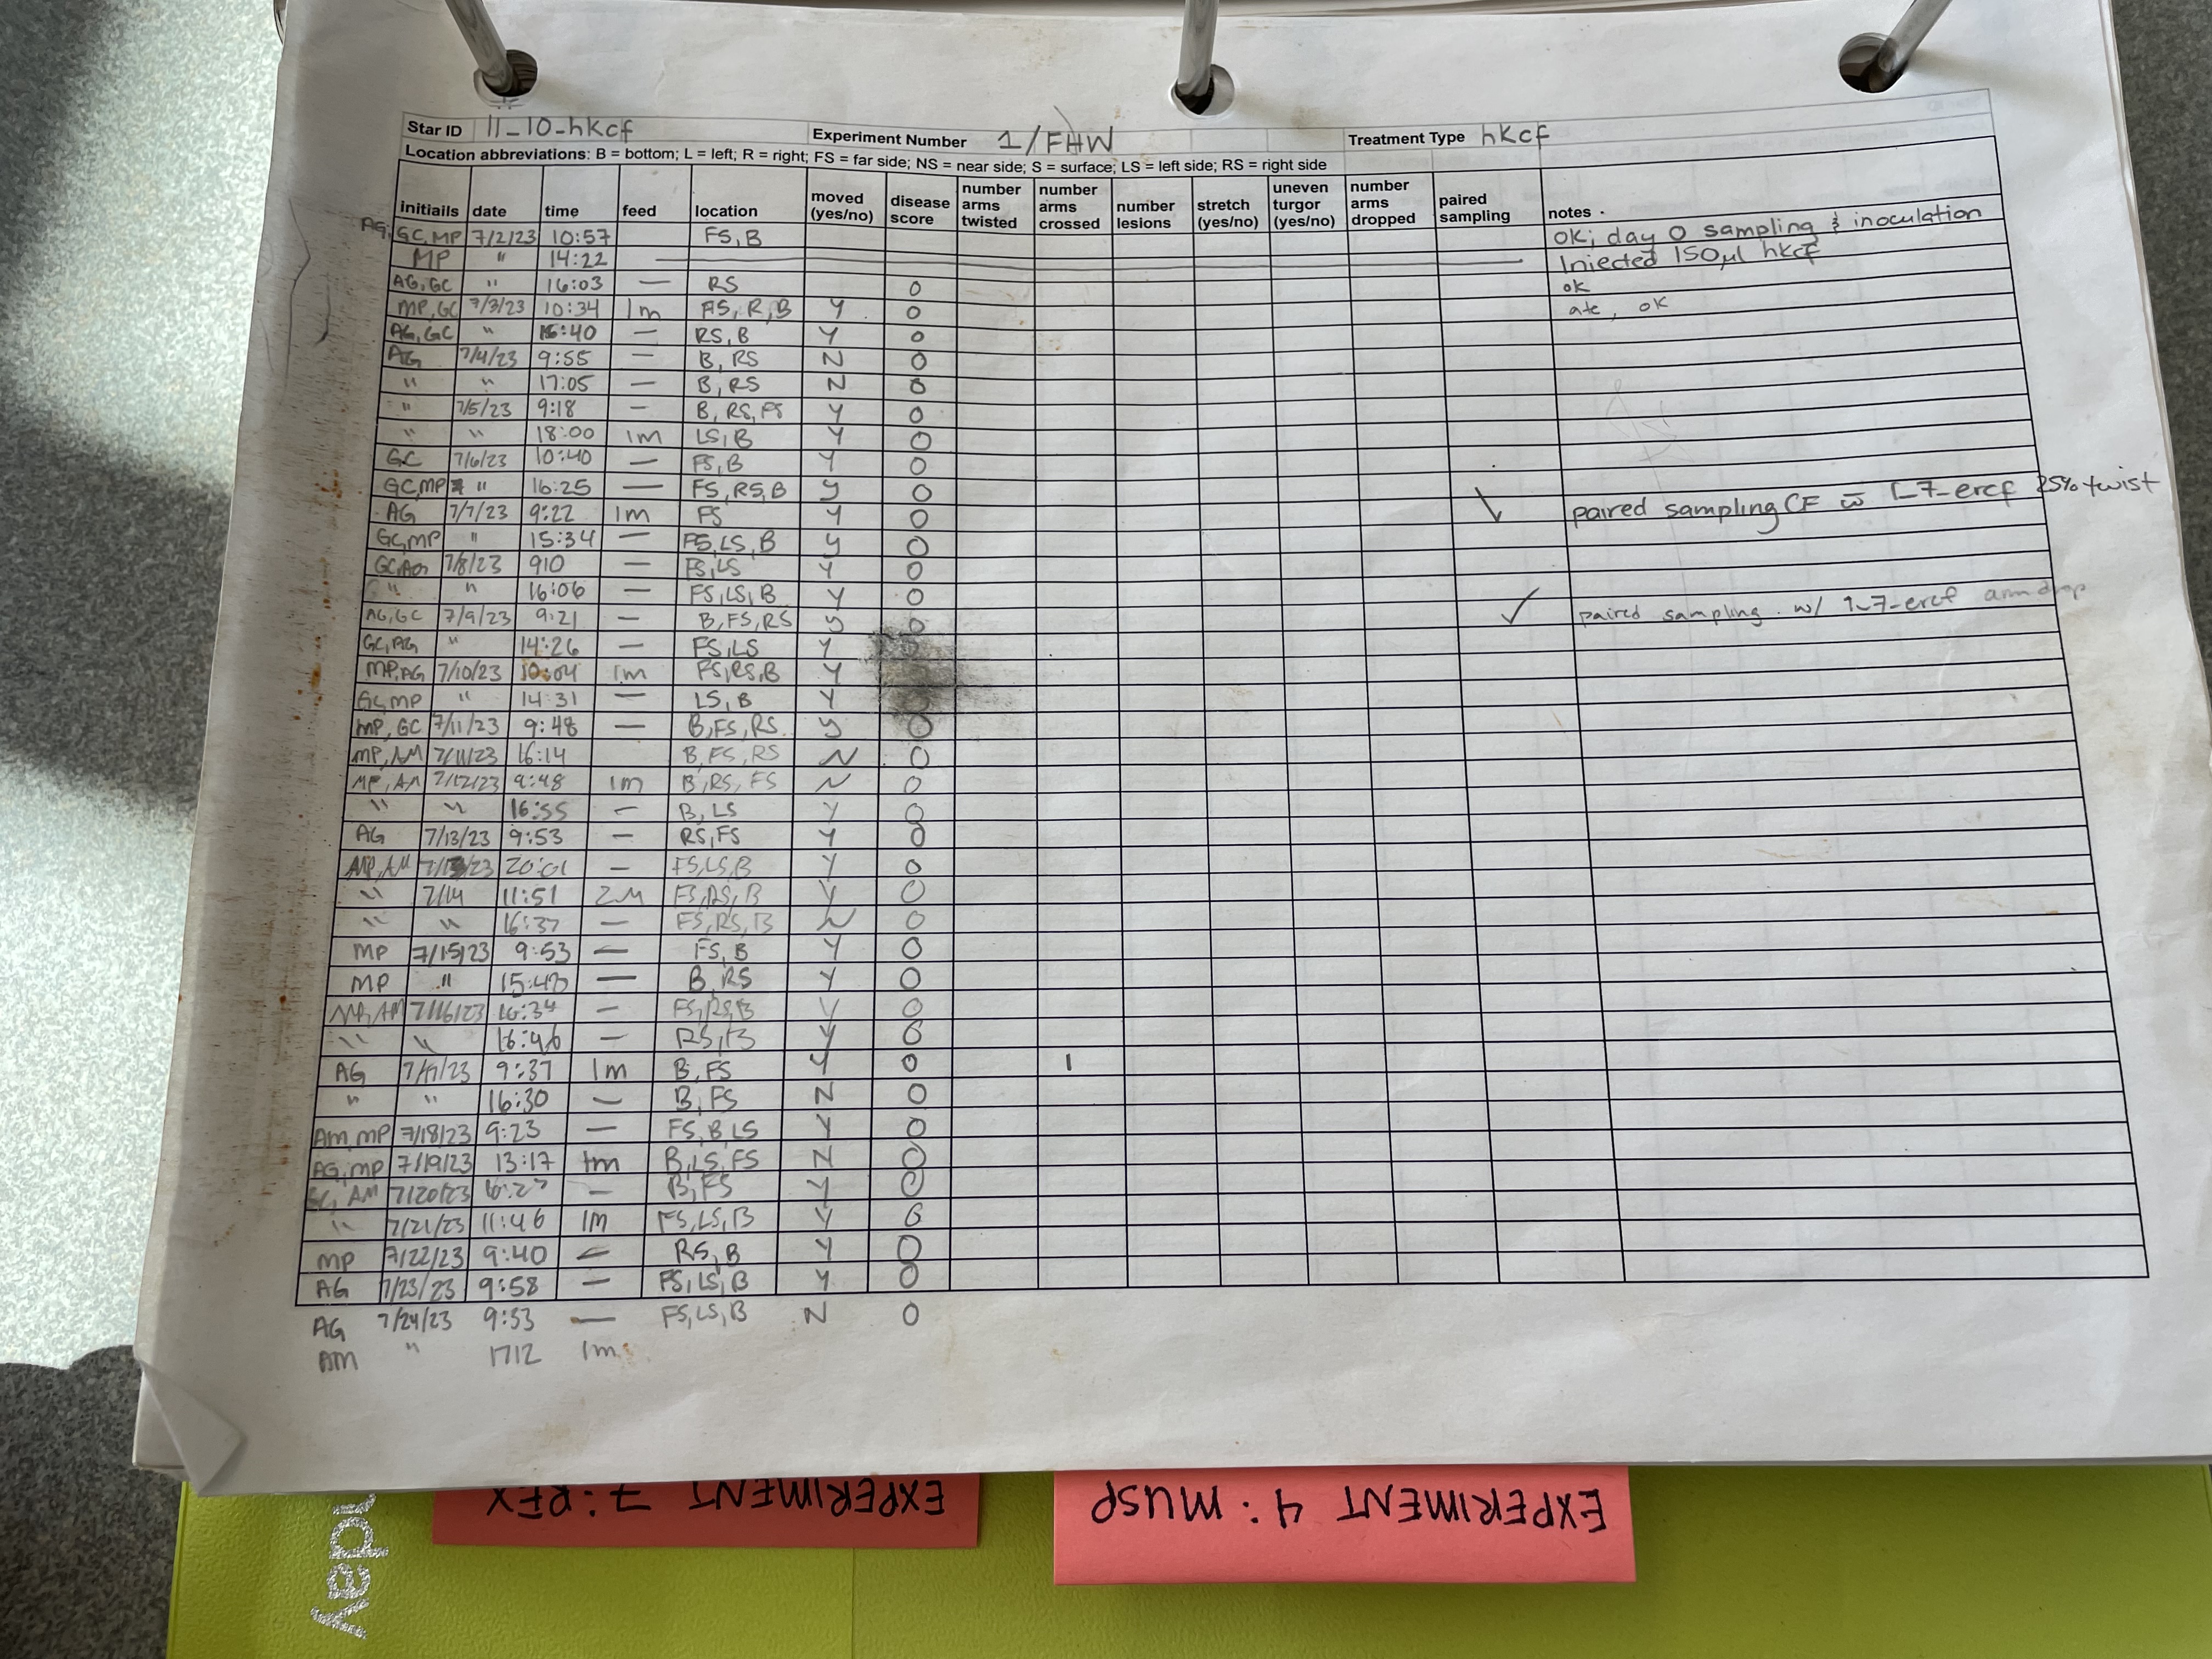 Star ID 11_10-hkcf Experiment Number 1/FHW Treatment Type hkcf
Location abbreviations: B = bottom; L = left; R = right; FS = far side; NS = near side; S = surface; LS = left side; RS = right side
initiails date time feed location moved (yes/no) disease score number arms twisted number arms crossed number lesions stretch (yes/no) uneven turgor (yes/no) number arms dropped paired sampling notes
AG, GC, MP 7/2/23 10:57 FS, B OK; day 0 sampling & inoculation
MP " 14:22 Injected 150µl hkcf
AG, GC " 16:03 — RS 0 ok
MP, GC 7/3/23 10:34 1m FS, R, B Y 0 ate, ok
AG, GC " 16:40 — RS, B Y 0
AG 7/4/23 9:55 — B, RS N 0
" " 17:05 — B, RS N 0
" 7/5/23 9:18 — B, RS, FS Y 0
" " 18:00 1m LS, B Y 0
GC 7/6/23 10:40 — FS, B Y 0
GC, MP " 16:25 — FS, RS, B y 0 paired sampling CF w 1_7-ercf 25% twist
AG 7/7/23 9:22 1m FS Y 0
GC, MP " 15:34 — FS, LS, B y 0
GC, AG 7/8/23 910 — FS, LS Y 0
" " 16:06 — FS, LS, B Y 0
AG, GC 7/9/23 9:21 — B, FS, RS y 0 ✓ paired sampling w/ 9_7-ercf arm drop
GC, AG " 14:26 — FS, LS Y
MP, AG 7/10/23 10:04 1m FS, RS, B Y
GC, MP " 14:31 — LS, B Y
MP, GC 7/11/23 9:48 — B, FS, RS y 0
MP, AM 7/11/23 16:14 B, FS, RS N 0
MP, AM 7/12/23 9:48 1m B, RS, FS N 0
" " 16:55 — B, LS Y 0
AG 7/13/23 9:53 — RS, FS Y 0
MP, AM 7/13/23 20:01 — FS, LS, B Y 0
" 7/14 11:51 2M FS, RS, B Y 0
" " 16:37 — FS, RS, B N 0
MP 7/15/23 9:53 — FS, B Y 0
MP " 15:43 — B, RS Y 0
MP, AM 7/16/23 10:34 — FS, RS, B Y 0
" " 16:46 — RS, B Y 0
AG 7/17/23 9:37 1m B, FS Y 0 1
" " 16:30 — B, FS N 0
Am, mp 7/18/23 9:23 — FS, B, LS Y 0
AG, mp 7/19/23 13:17 1m B, LS, FS N 0
GC, AM 7/20/23 — B, FS y 0
" 7/21/23 11:46 1M FS, LS, B Y 0
MP 7/22/23 9:40 — RS, B Y 0
AG 7/23/23 9:58 — FS, LS, B Y 0
AG 7/24/23 9:53 — FS, LS, B N 0
AM " 1712 1m
EXPERIMENT 7: RFX
EXPERIMENT 4: MUSP
nday